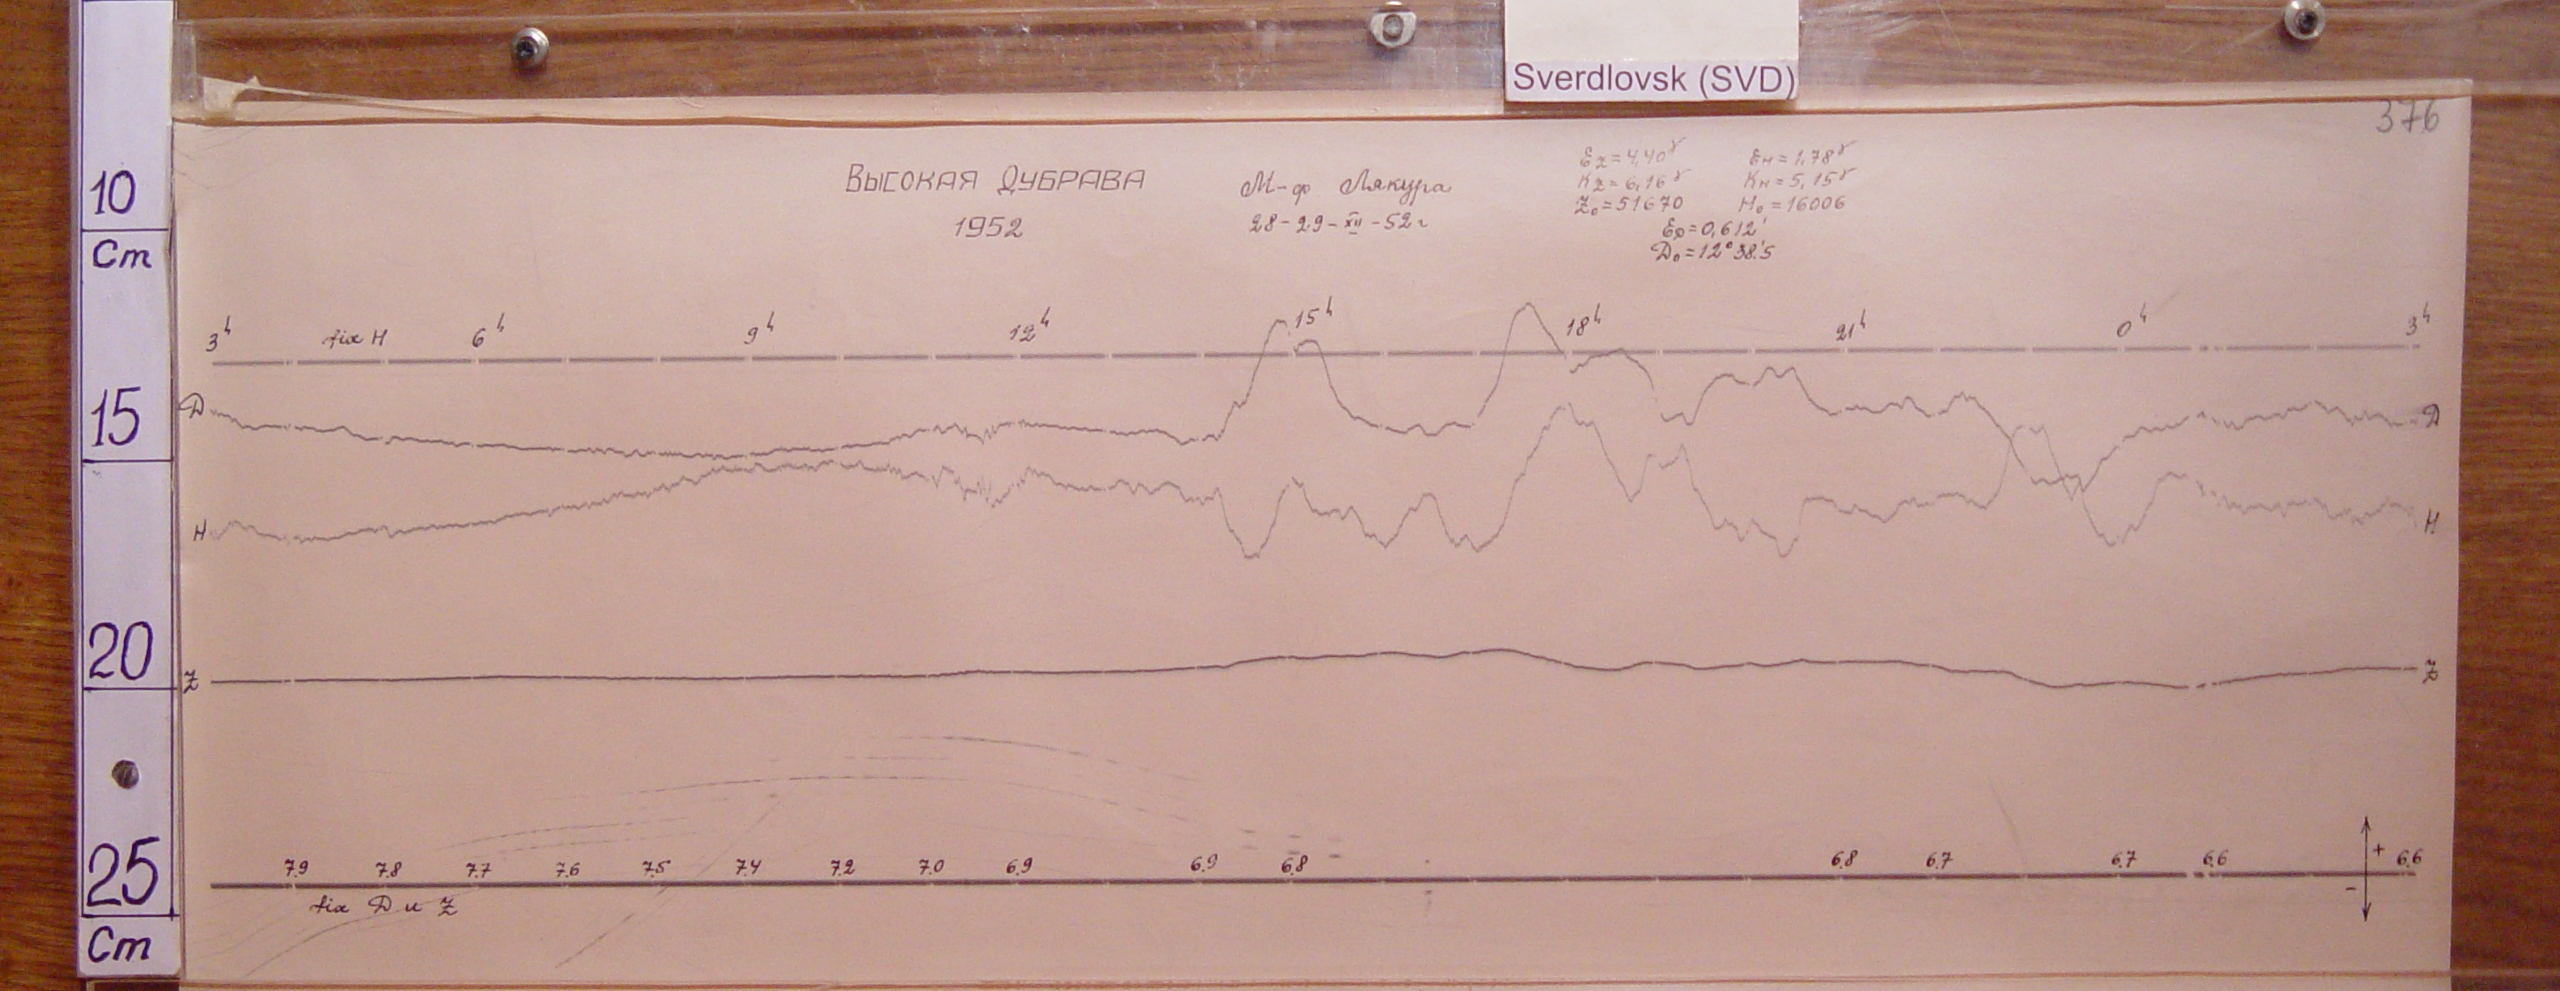 Sverdlovsk (SVD)
376
Высокая Дубрава
1952
М-ф Лякура
28-29-XII-52г
Ez=4,40γ Eн=1,78γ
Kz=6,16γ Kн=5,15γ
Z₀=51670 H₀=16006
E𝒟=0,612'
Д₀=12°38'.5
10
Cm
15
20
25
Cm
3h fix H 6h 9h 12h 15h 18h 21h 0h 3h
Д Д
H H
Z Z
7.9 7.8 7.7 7.6 7.5 7.4 7.2 7.0 6.9 6.9 6.8 6.8 6.7 6.7 6.6 6.6
+
-
fix Д и Z